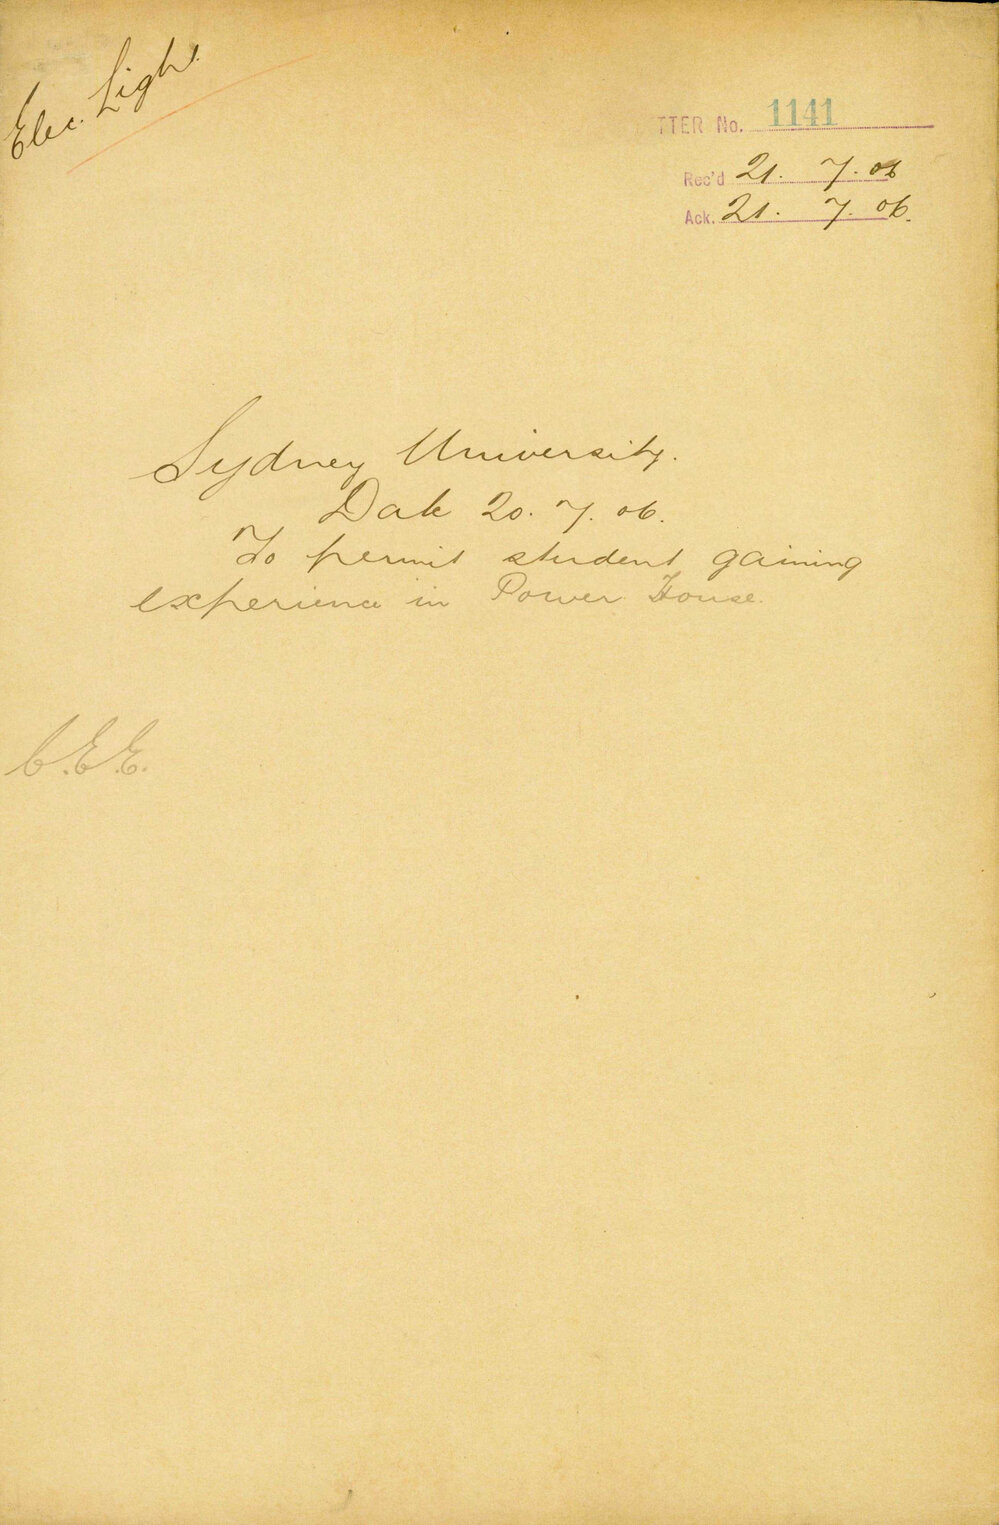 Elec. Light.
TTER No. 1141
Rec'd 21. 7. 06
Ack. 21. 7. 06.
Sydney University.
Date 20. 7. 06.
To permit student gaining
experience in Power House.
C.E.E.